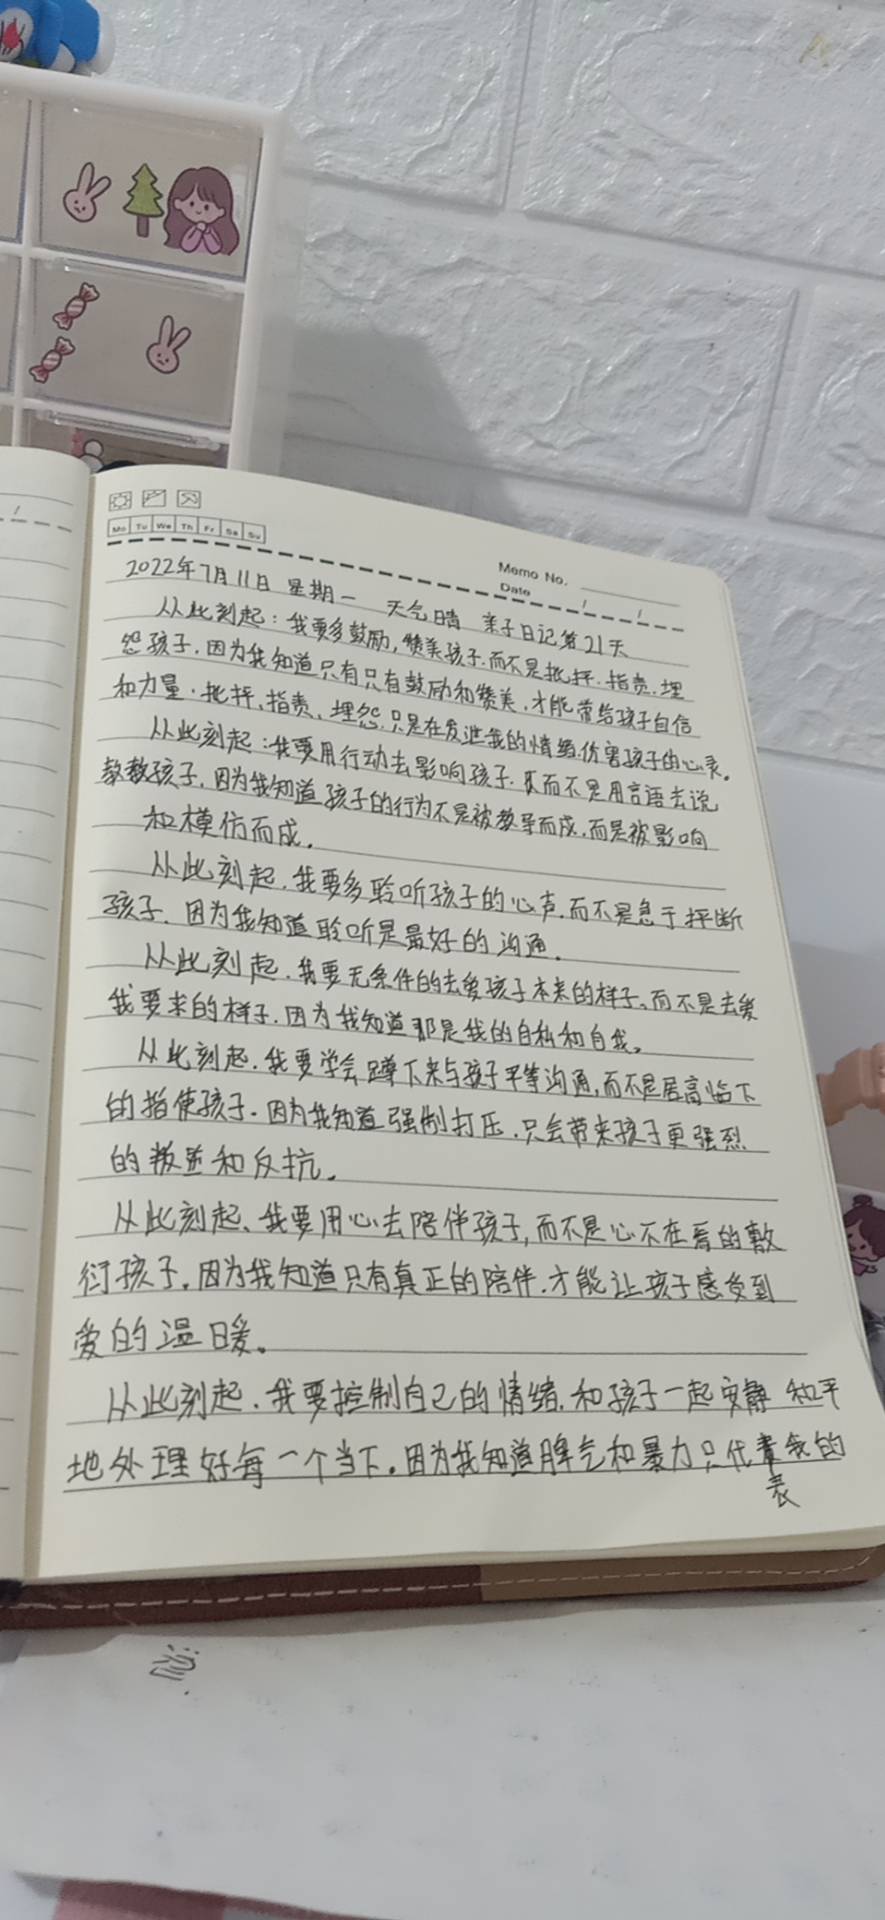 Mo Tu We Th Fr Sa Su
Memo No.
Date / /
2022年7月11日 星期一 天气晴 亲子日记第21天
从此刻起:我要多鼓励,赞美孩子.而不是批抨.指责.埋
怨孩子.因为我知道只有只有鼓励和赞美.才能带给孩子自信
和力量.批抨、指责、埋怨.只是在发泄我的情绪伤害孩子的心灵。
从此刻起:我要用行动去影响孩子.而不是用言语去说
教孩子.因为我知道孩子的行为不是被教导而成.而是被影响
和模仿而成.
从此刻起.我要多聆听孩子的心声.而不是急于抨断
孩子.因为我知道聆听是最好的沟通.
从此刻起.我要无条件的去爱孩子本来的样子。而不是去爱
我要求的样子.因为我知道那是我的自私和自我。
从此刻起.我要学会蹲下来与孩子平等沟通,而不是居高临下
的指使孩子.因为我知道强制打压.只会带来孩子更强烈
的叛逆和反抗.
从此刻起、我要用心去陪伴孩子,而不是心不在焉的敷
衍孩子.因为我知道只有真正的陪伴.才能让孩子感受到
爱的温暖。
从此刻起.我要控制自己的情绪.和孩子一起安静 和平
地处理好每一个当下.因为我知道脾气和暴力只代表我的